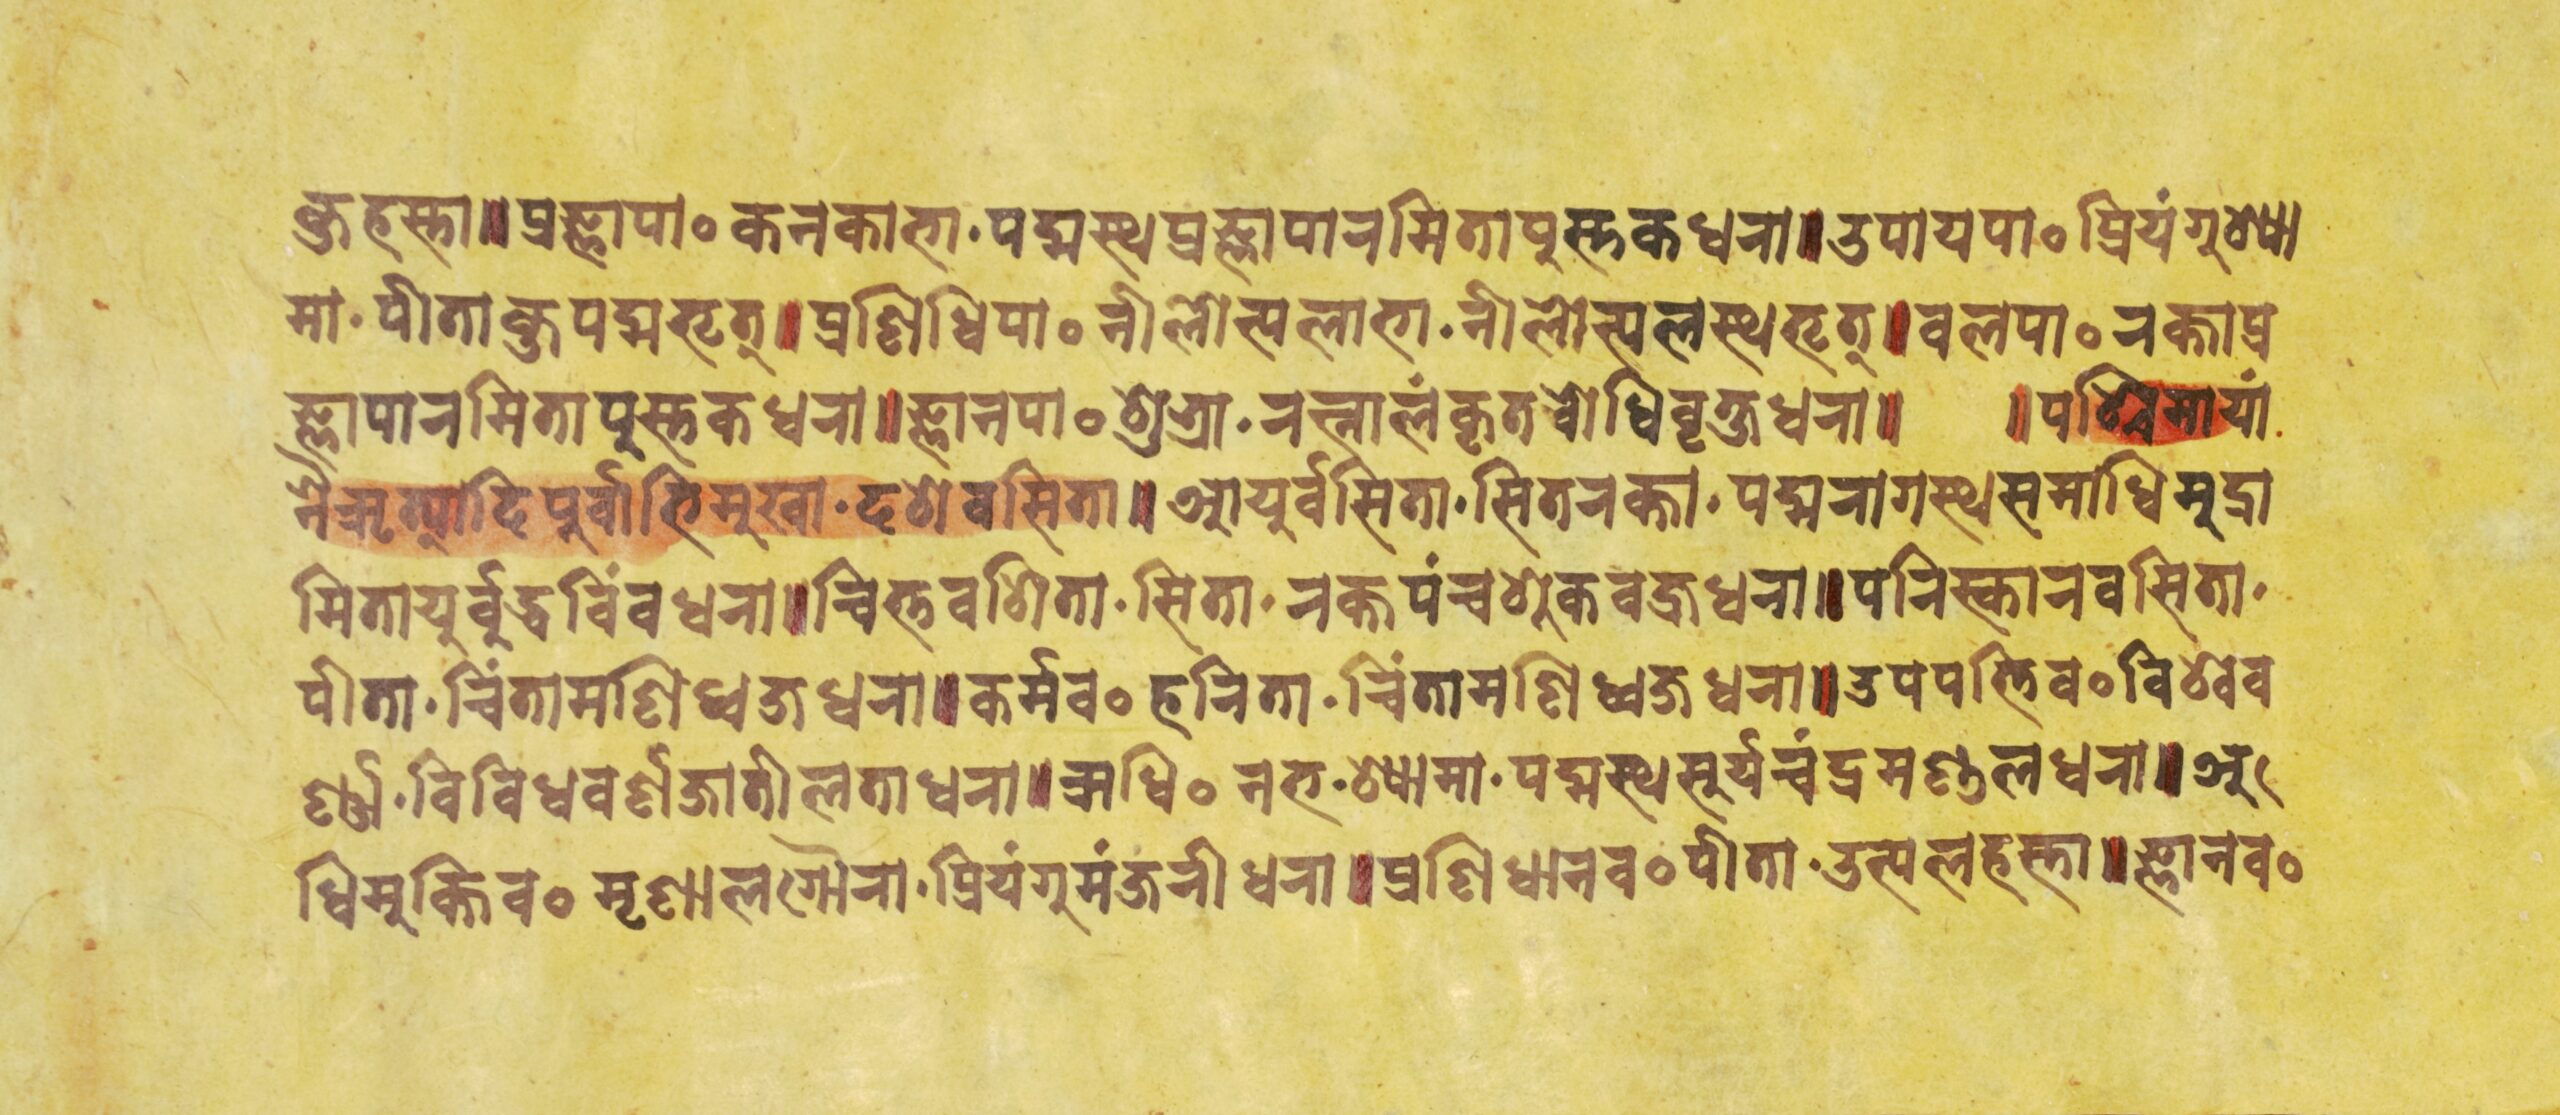 क्तहस्ता॥प्रज्ञापा॰कनकाभा·पद्मस्थप्रज्ञापारमितापुस्तकधरा॥उपायपा॰प्रियंगुश्या
मा·पीताक्तपद्मभृत्॥प्रणिधिपा॰नीलोत्पलाभा·नीलोत्पलस्थभृत्॥वलपा॰रक्ताप्र
ज्ञापारमितापुस्तकधरा॥ज्ञानपा॰शुभ्रा·रत्नालंकृतबोधिवृक्षधरा॥ ॥पश्चिमायां
नैऋत्यादिपूर्वाभिमुखा·दशवसिता॥आयुर्वसिता·सितरक्ता·पद्मरागस्थसमाधिमुद्रा
मितायुर्वुद्धविंवधरा॥चित्तवशिता·सिता·रक्तपंचशुकवज्रधरा॥परिस्कारवसिता·
पीता·चिंतामणिध्वजधरा॥कर्मव॰हरिता·चिंतामणिध्वजधरा॥उपपत्तिव॰विश्वेव
र्ण्णा·विविधवर्णजातीलताधरा॥ऋधि॰नभ·श्यामा·पद्मस्थसूर्यचंद्रमण्डलधरा॥अ
धिमुक्तिव॰मृणालगौरा·प्रियंगुमंजरीधरा॥प्रणिधानव॰पीता·उत्पलहस्ता॥ज्ञानव॰